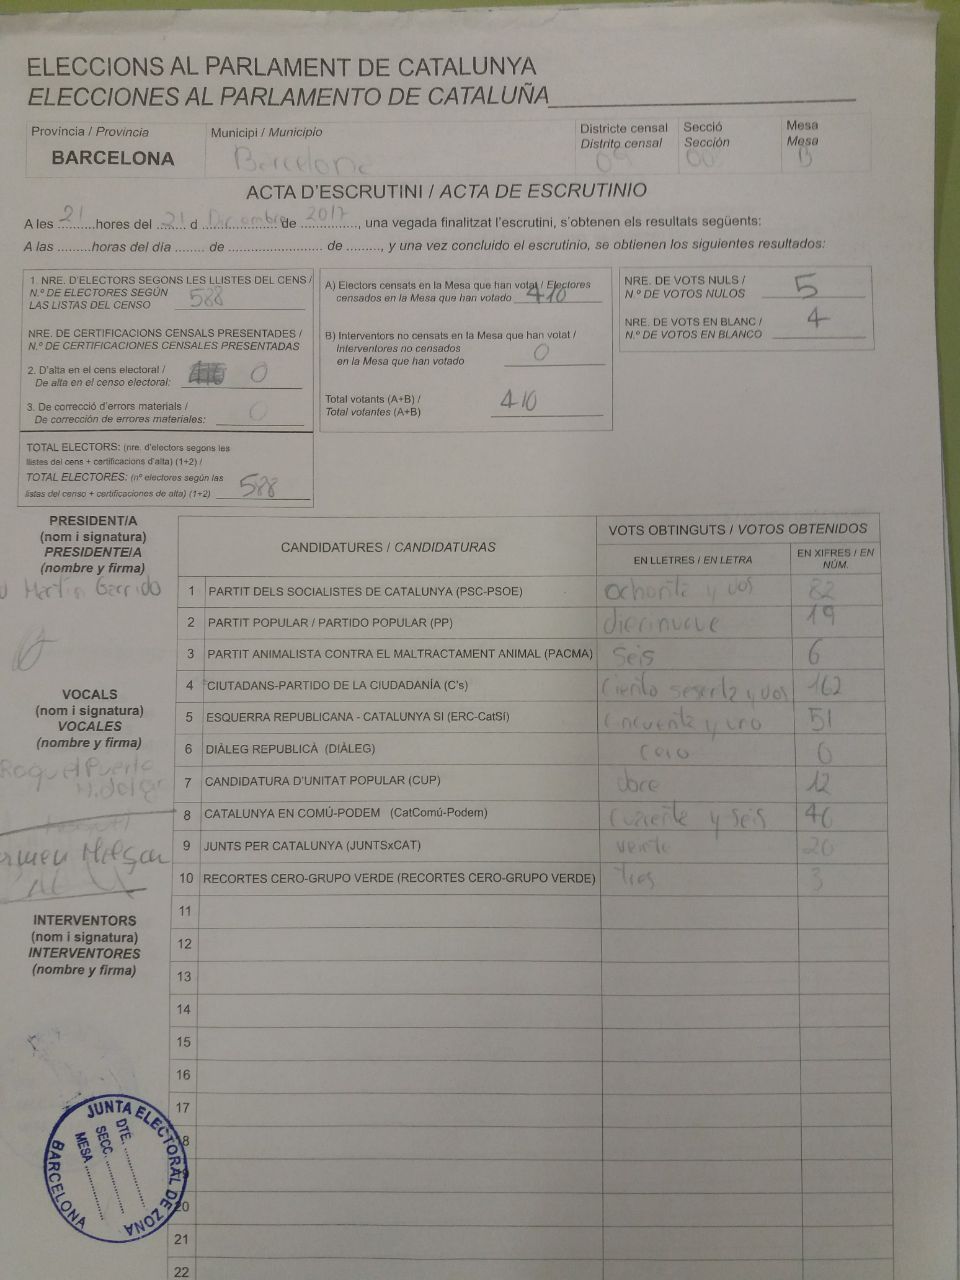 ELECCIONS AL PARLAMENT DE CATALUNYA
ELECCIONES AL PARLAMENTO DE CATALUÑA
Provincia / Provincia
BARCELONA
Municipi / Municipio
Barcelona
Districte censal
Distrito censal
09
Secció
Sección
Mesa
Mesa
B
ACTA D'ESCRUTINI / ACTA DE ESCRUTINIO
A les 21 hores del 21 d Diciembre de 2017, una vegada finalitzat l'escrutini, s'obtenen els resultats següents:
A las .........horas del día ....... de ...................... de ........., y una vez concluido el escrutinio, se obtienen los siguientes resultados:
1. NRE. D'ELECTORS SEGONS LES LLISTES DEL CENS /
N.º DE ELECTORES SEGÚN
LAS LISTAS DEL CENSO 588
NRE. DE CERTIFICACIONS CENSALS PRESENTADES /
N.º DE CERTIFICACIONES CENSALES PRESENTADAS
2. D'alta en el cens electoral /
De alta en el censo electoral: 0
3. De correcció d'errors materials /
De corrección de errores materiales: 0
TOTAL ELECTORS: (nre. d'electors segons les
llistes del cens + certificacions d'alta) (1+2) /
TOTAL ELECTORES: (nº electores según las
listas del censo + certificaciones de alta) (1+2) 588
A) Electors censats en la Mesa que han votat / Electores
censados en la Mesa que han votado 410
B) Interventors no censats en la Mesa que han votat /
Interventores no censados
en la Mesa que han votado 0
Total votants (A+B) /
Total votantes (A+B) 410
NRE. DE VOTS NULS /
N.º DE VOTOS NULOS 5
NRE. DE VOTS EN BLANC /
N.º DE VOTOS EN BLANCO 4
PRESIDENT/A
(nom i signatura)
PRESIDENTE/A
(nombre y firma)
Martín Garrido
VOCALS
(nom i signatura)
VOCALES
(nombre y firma)
Raquel Puerto
INTERVENTORS
(nom i signatura)
INTERVENTORES
(nombre y firma)
CANDIDATURES / CANDIDATURAS
VOTS OBTINGUTS / VOTOS OBTENIDOS
EN LLETRES / EN LETRA
EN XIFRES / EN
NÚM.
1 PARTIT DELS SOCIALISTES DE CATALUNYA (PSC-PSOE) ochenta y dos 82
2 PARTIT POPULAR / PARTIDO POPULAR (PP) diecinueve 19
3 PARTIT ANIMALISTA CONTRA EL MALTRACTAMENT ANIMAL (PACMA) seis 6
4 CIUTADANS-PARTIDO DE LA CIUDADANÍA (C's) ciento sesenta y dos 162
5 ESQUERRA REPUBLICANA - CATALUNYA SI (ERC-CatSí) cincuenta y uno 51
6 DIÀLEG REPUBLICÀ (DIÀLEG) cero 0
7 CANDIDATURA D'UNITAT POPULAR (CUP) doce 12
8 CATALUNYA EN COMÚ-PODEM (CatComú-Podem) cuarenta y seis 46
9 JUNTS PER CATALUNYA (JUNTSxCAT) veinte 20
10 RECORTES CERO-GRUPO VERDE (RECORTES CERO-GRUPO VERDE) tres 3
11
12
13
14
15
16
17
18
19
20
21
22
JUNTA ELECTORAL DE ZONA
BARCELONA
DTE. ..........
SECC. ..........
MESA ..........